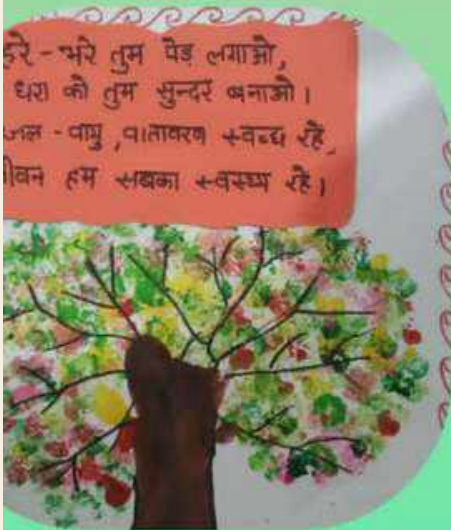 हरे - भरे तुम पेड़ लगाओ,
धरा को तुम सुन्दर बनाओ।
जल - वायु, वातावरण स्वच्छ रहे,
जीवन हम सबका स्वस्थ्य रहे।